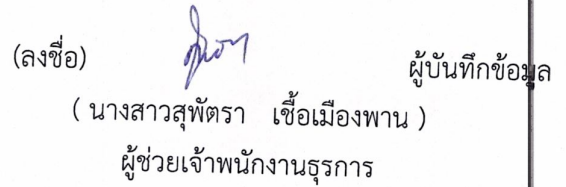 (ลงชื่อ) ผู้บันทึกข้อมูล
( นางสาวสุพัตรา เชื้อเมืองพาน )
ผู้ช่วยเจ้าพนักงานธุรการ